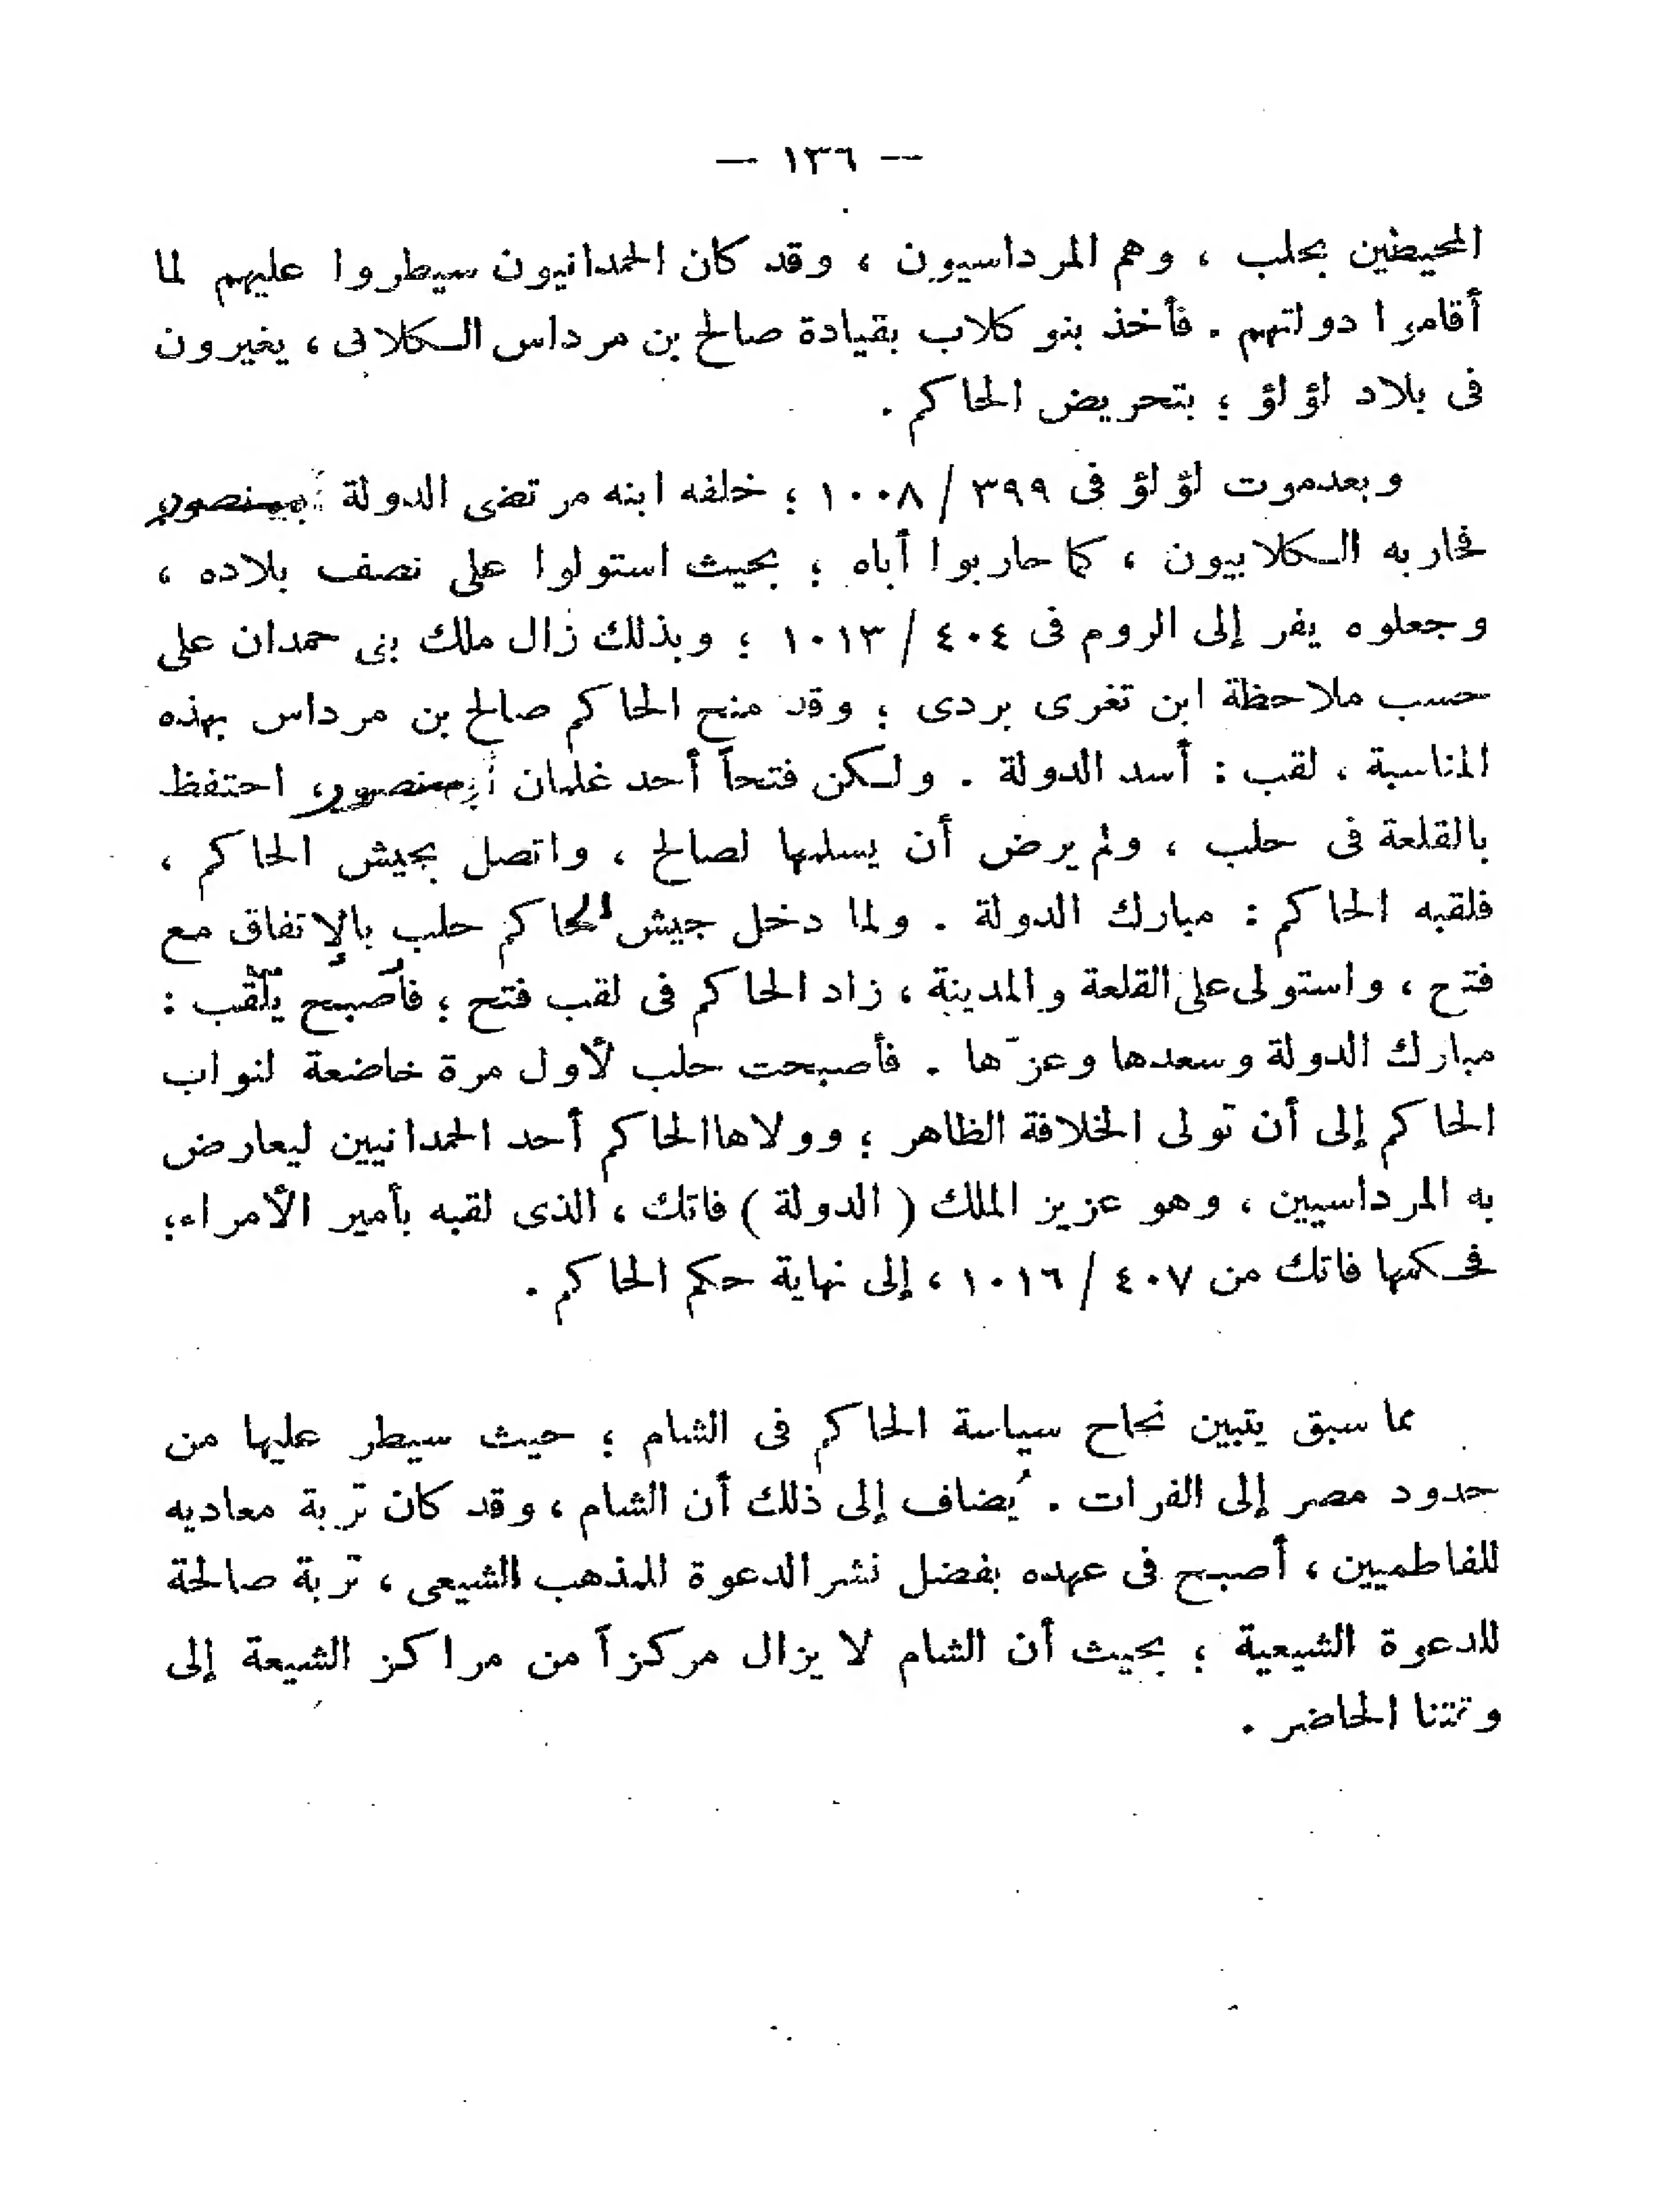 — ١٣٦ —
المحيطين بحلب ، وهم المرداسيون ، وقد كان الحمدانيون سيطروا عليهم لما
أقاموا دولتهم . فأخذ بنو كلاب بقيادة صالح بن مرداس الكلابى ، يغيرون
فى بلاد لؤلؤ ؛ بتحريض الحاكم .
وبعد موت لؤلؤ فى ٣٩٩ / ١٠٠٨ ؛ خلفه ابنه مرتضى الدولة منصور
فحاربه الكلابيون ، كما حاربوا أباه ؛ بحيث استولوا على نصف بلاده ،
وجعلوه يفر إلى الروم فى ٤٠٤ / ١٠١٣ ؛ وبذلك زال ملك بنى حمدان على
حسب ملاحظة ابن تغرى بردى ؛ وقد منح الحاكم صالح بن مرداس بهذه
المناسبة ، لقب : أسد الدولة . ولكن فتحاً أحد غلمان منصور، احتفظ
بالقلعة فى حلب ، ولم يرض أن يسلمها لصالح ، واتصل بجيش الحاكم ،
فلقبه الحاكم : مبارك الدولة . ولما دخل جيش الحاكم حلب بالإتفاق مع
فتح ، واستولى على القلعة والمدينة ، زاد الحاكم فى لقب فتح ؛ فأصبح يلّقب :
مبارك الدولة وسعدها وعزّها . فأصبحت حلب لأول مرة خاضعة لنواب
الحاكم إلى أن تولى الخلافة الظاهر ؛ وولاها الحاكم أحد الحمدانيين ليعارض
به المرداسيين ، وهو عزيز الملك ( الدولة ) فاتك ، الذى لقبه بأمير الأمراء؛
فحكمها فاتك من ٤٠٧ / ١٠١٦ ، إلى نهاية حكم الحاكم .
مما سبق يتبين نجاح سياسة الحاكم فى الشام ؛ حيث سيطر عليها من
حدود مصر إلى الفرات . يُضاف إلى ذلك أن الشام ، وقد كان تربة معاديه
للفاطميين ، أصبح فى عهده بفضل نشر الدعوة للمذهب الشيعى ، تربة صالحة
للدعوة الشيعية ؛ بحيث أن الشام لا يزال مركزاً من مراكز الشيعة إلى
وقتنا الحاضر .